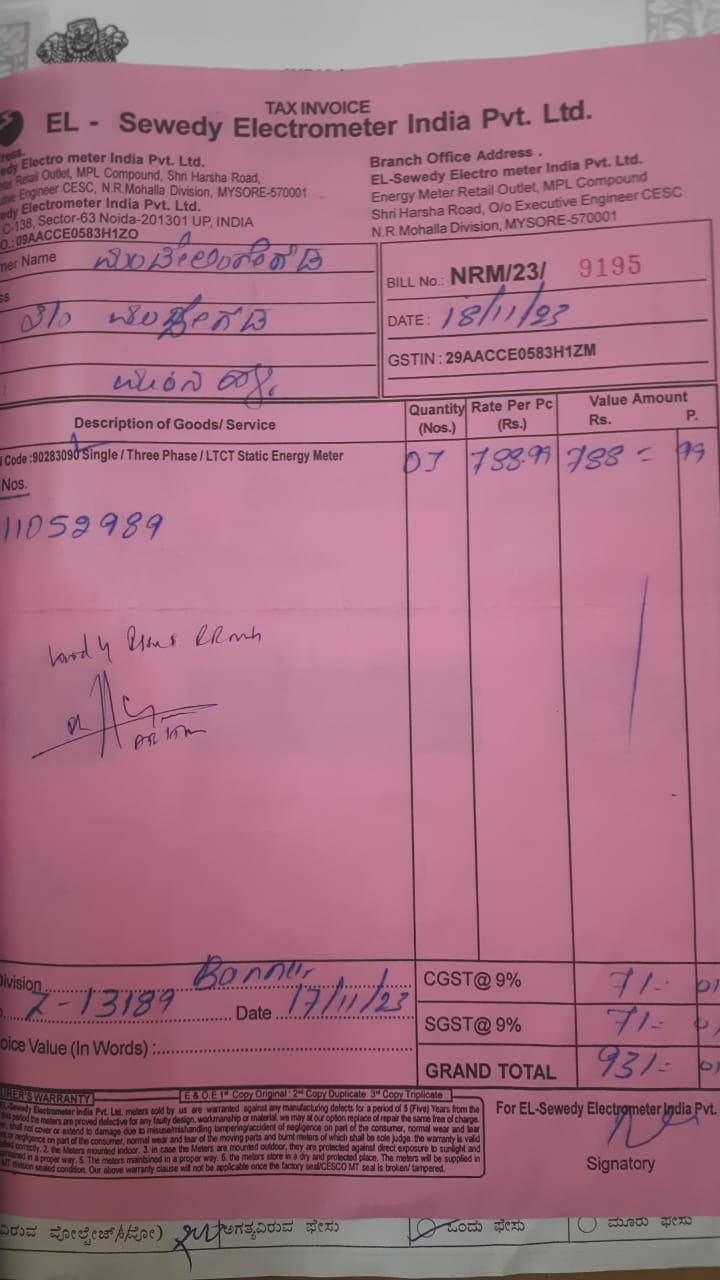 TAX INVOICE
EL - Sewedy Electrometer India Pvt. Ltd.
edy Electro meter India Pvt. Ltd.
Retail Outlet, MPL Compound, Shri Harsha Road,
Engineer CESC, N.R.Mohalla Division, MYSORE-570001
edy Electrometer India Pvt. Ltd.
C-138, Sector-63 Noida-201301 UP, INDIA
O.: 09AACCE0583H1ZO
Branch Office Address .
EL-Sewedy Electro meter India Pvt. Ltd.
Energy Meter Retail Outlet, MPL Compound
Shri Harsha Road, O/o Executive Engineer CESC
N.R.Mohalla Division, MYSORE-570001
mer Name
ss
BILL No.: NRM/23/ 9195
DATE : 18/11/23
GSTIN : 29AACCE0583H1ZM
Description of Goods/ Service
Quantity (Nos.)
Rate Per Pc (Rs.)
Value Amount
Rs. P.
Code :90283090 Single / Three Phase / LTCT Static Energy Meter
01 788.99 788 = 99
Nos.
11052989
Division Bannur
Z-13189 Date 17/11/23
oice Value (In Words) :
CGST@ 9% 71-
SGST@ 9% 71-
GRAND TOTAL 931-
URER'S WARRANTY
E & O.E 1st Copy Original : 2nd Copy Duplicate: 3rd Copy Triplicate :
EL-Sewedy Electrometer India Pvt. Ltd, meters sold by us are warranted against any manufacturing defects for a period of 5 (Five) Years from the
this period the meters are proved defective for any faulty design, workmanship or material, we may at our option replace of repair the same free of charge.
shall not cover or extend to damage due to misuse/mishanding tampering/accident of negligence on part of the consumer, normal wear and tear
or negligence on part of the consumer, normal wear and tear of the moving parts and burnt meters of which shall be sole judge. the warranty is valid
correctly. 2. the Meters mounted indoor. 3. in case the Meters are mounted outdoor, they are protected against direct exposure to sunlight and
ntained in a proper way. 5. The meters maintained in a proper way. 6. the meters store in a dry and protected place. The meters will be supplied in
MT division sealed condition. Our above warranty clause will not be applicable once the factory seal/CESCO MT seal is broken/ tampered.
For EL-Sewedy Electrometer India Pvt.
Signatory
ವಿರುವ ವೋಲ್ಟೇಜ್ ಅಗತ್ಯವಿರುವ ಫೇಸು ಒಂದು ಫೇಸು ಮೂರು ಫೇಸು